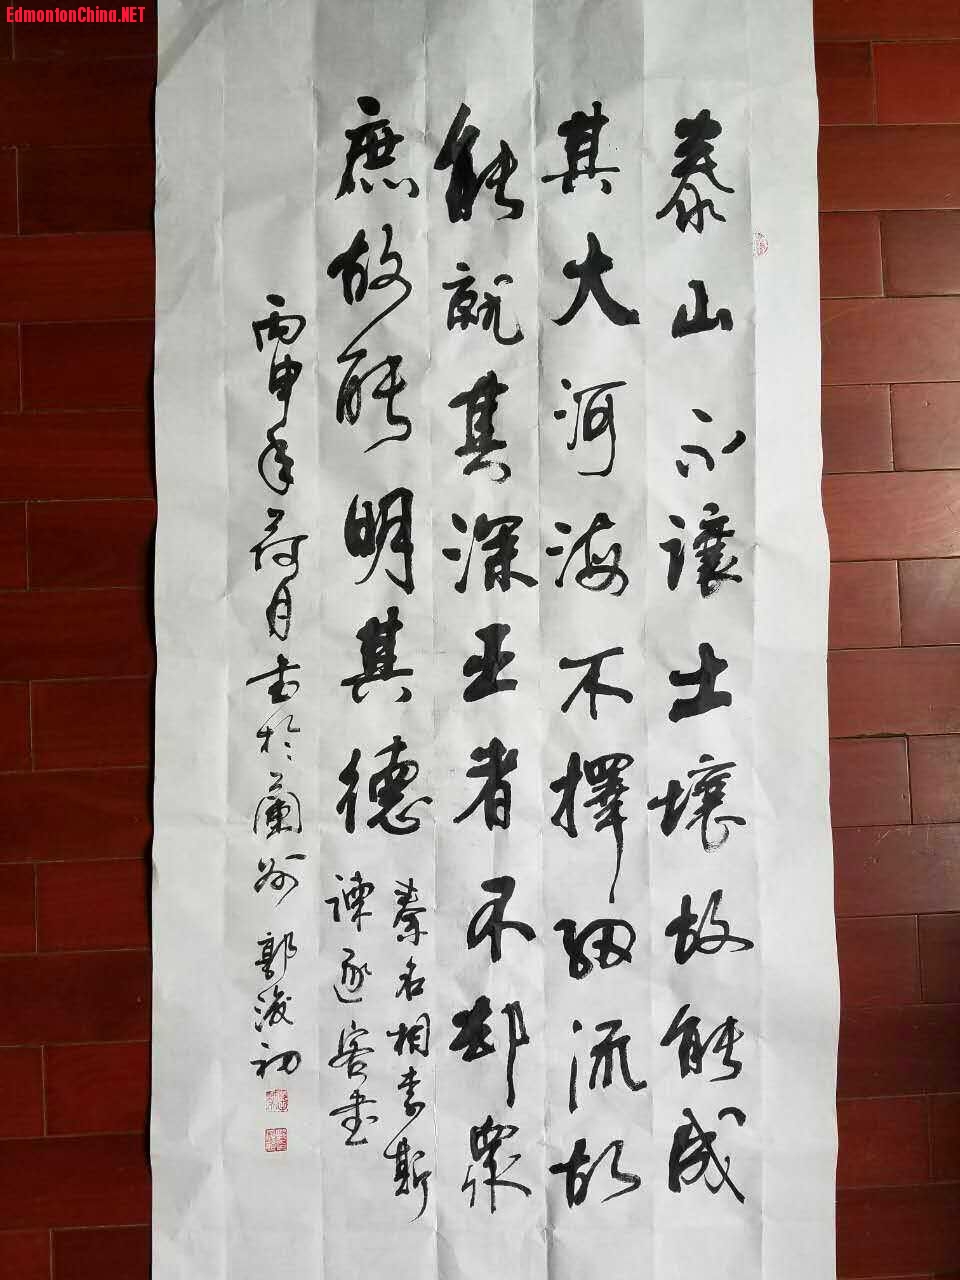 EdmontonChina.NET
泰山不讓土壤故能成
其大河海不擇細流故
能就其深王者不却衆
庶故能明其德
秦名相李斯
諫逐客書
丙申年荷月书於蘭州 郭浚初